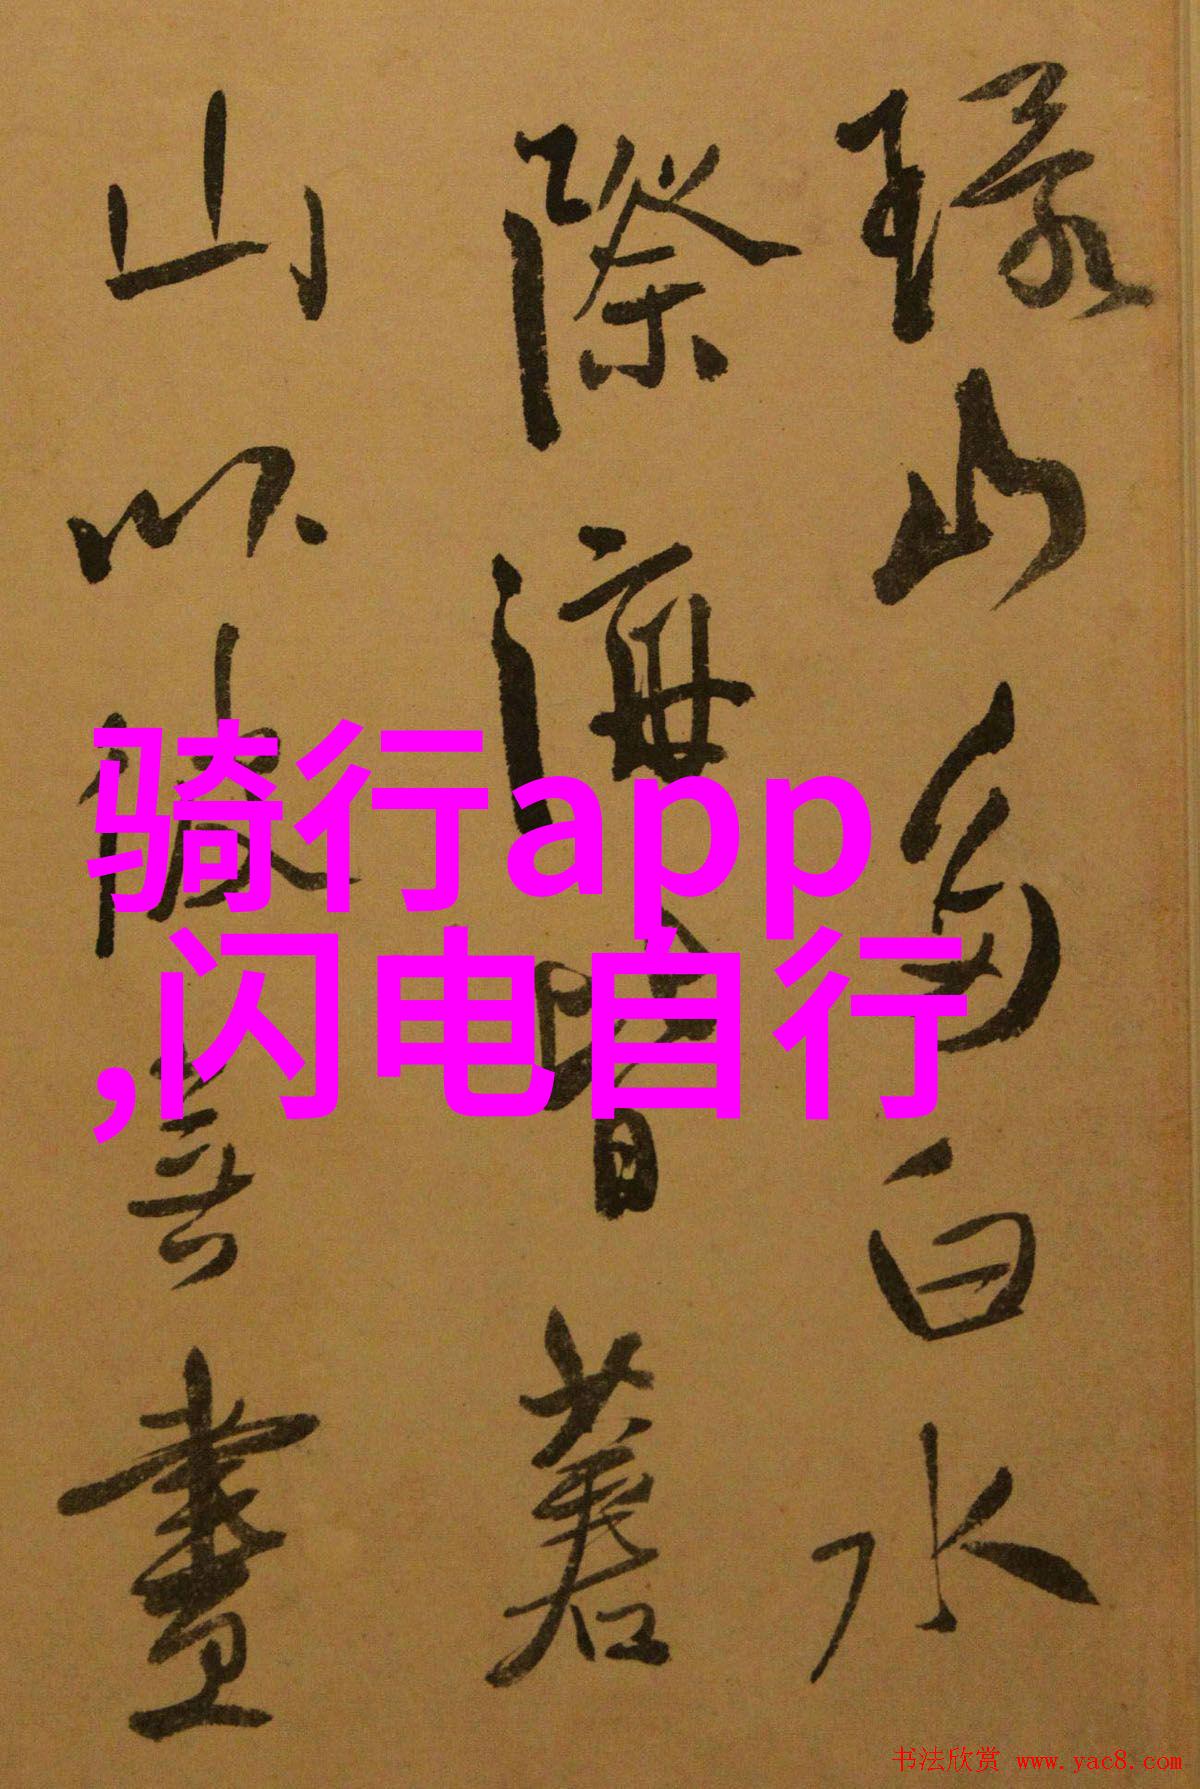 环山多白水
际海皆暮
山以微云画
骑行app
,闪电自行
书法欣赏 www.yac8.com